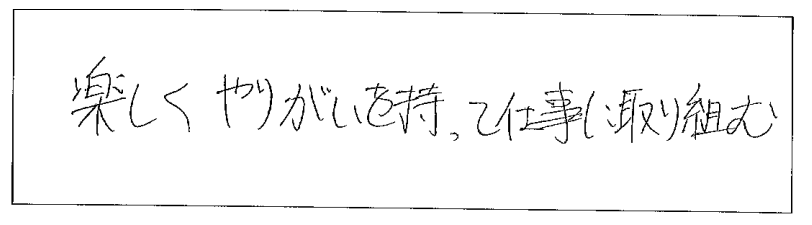 楽しくやりがいを持って仕事に取り組む